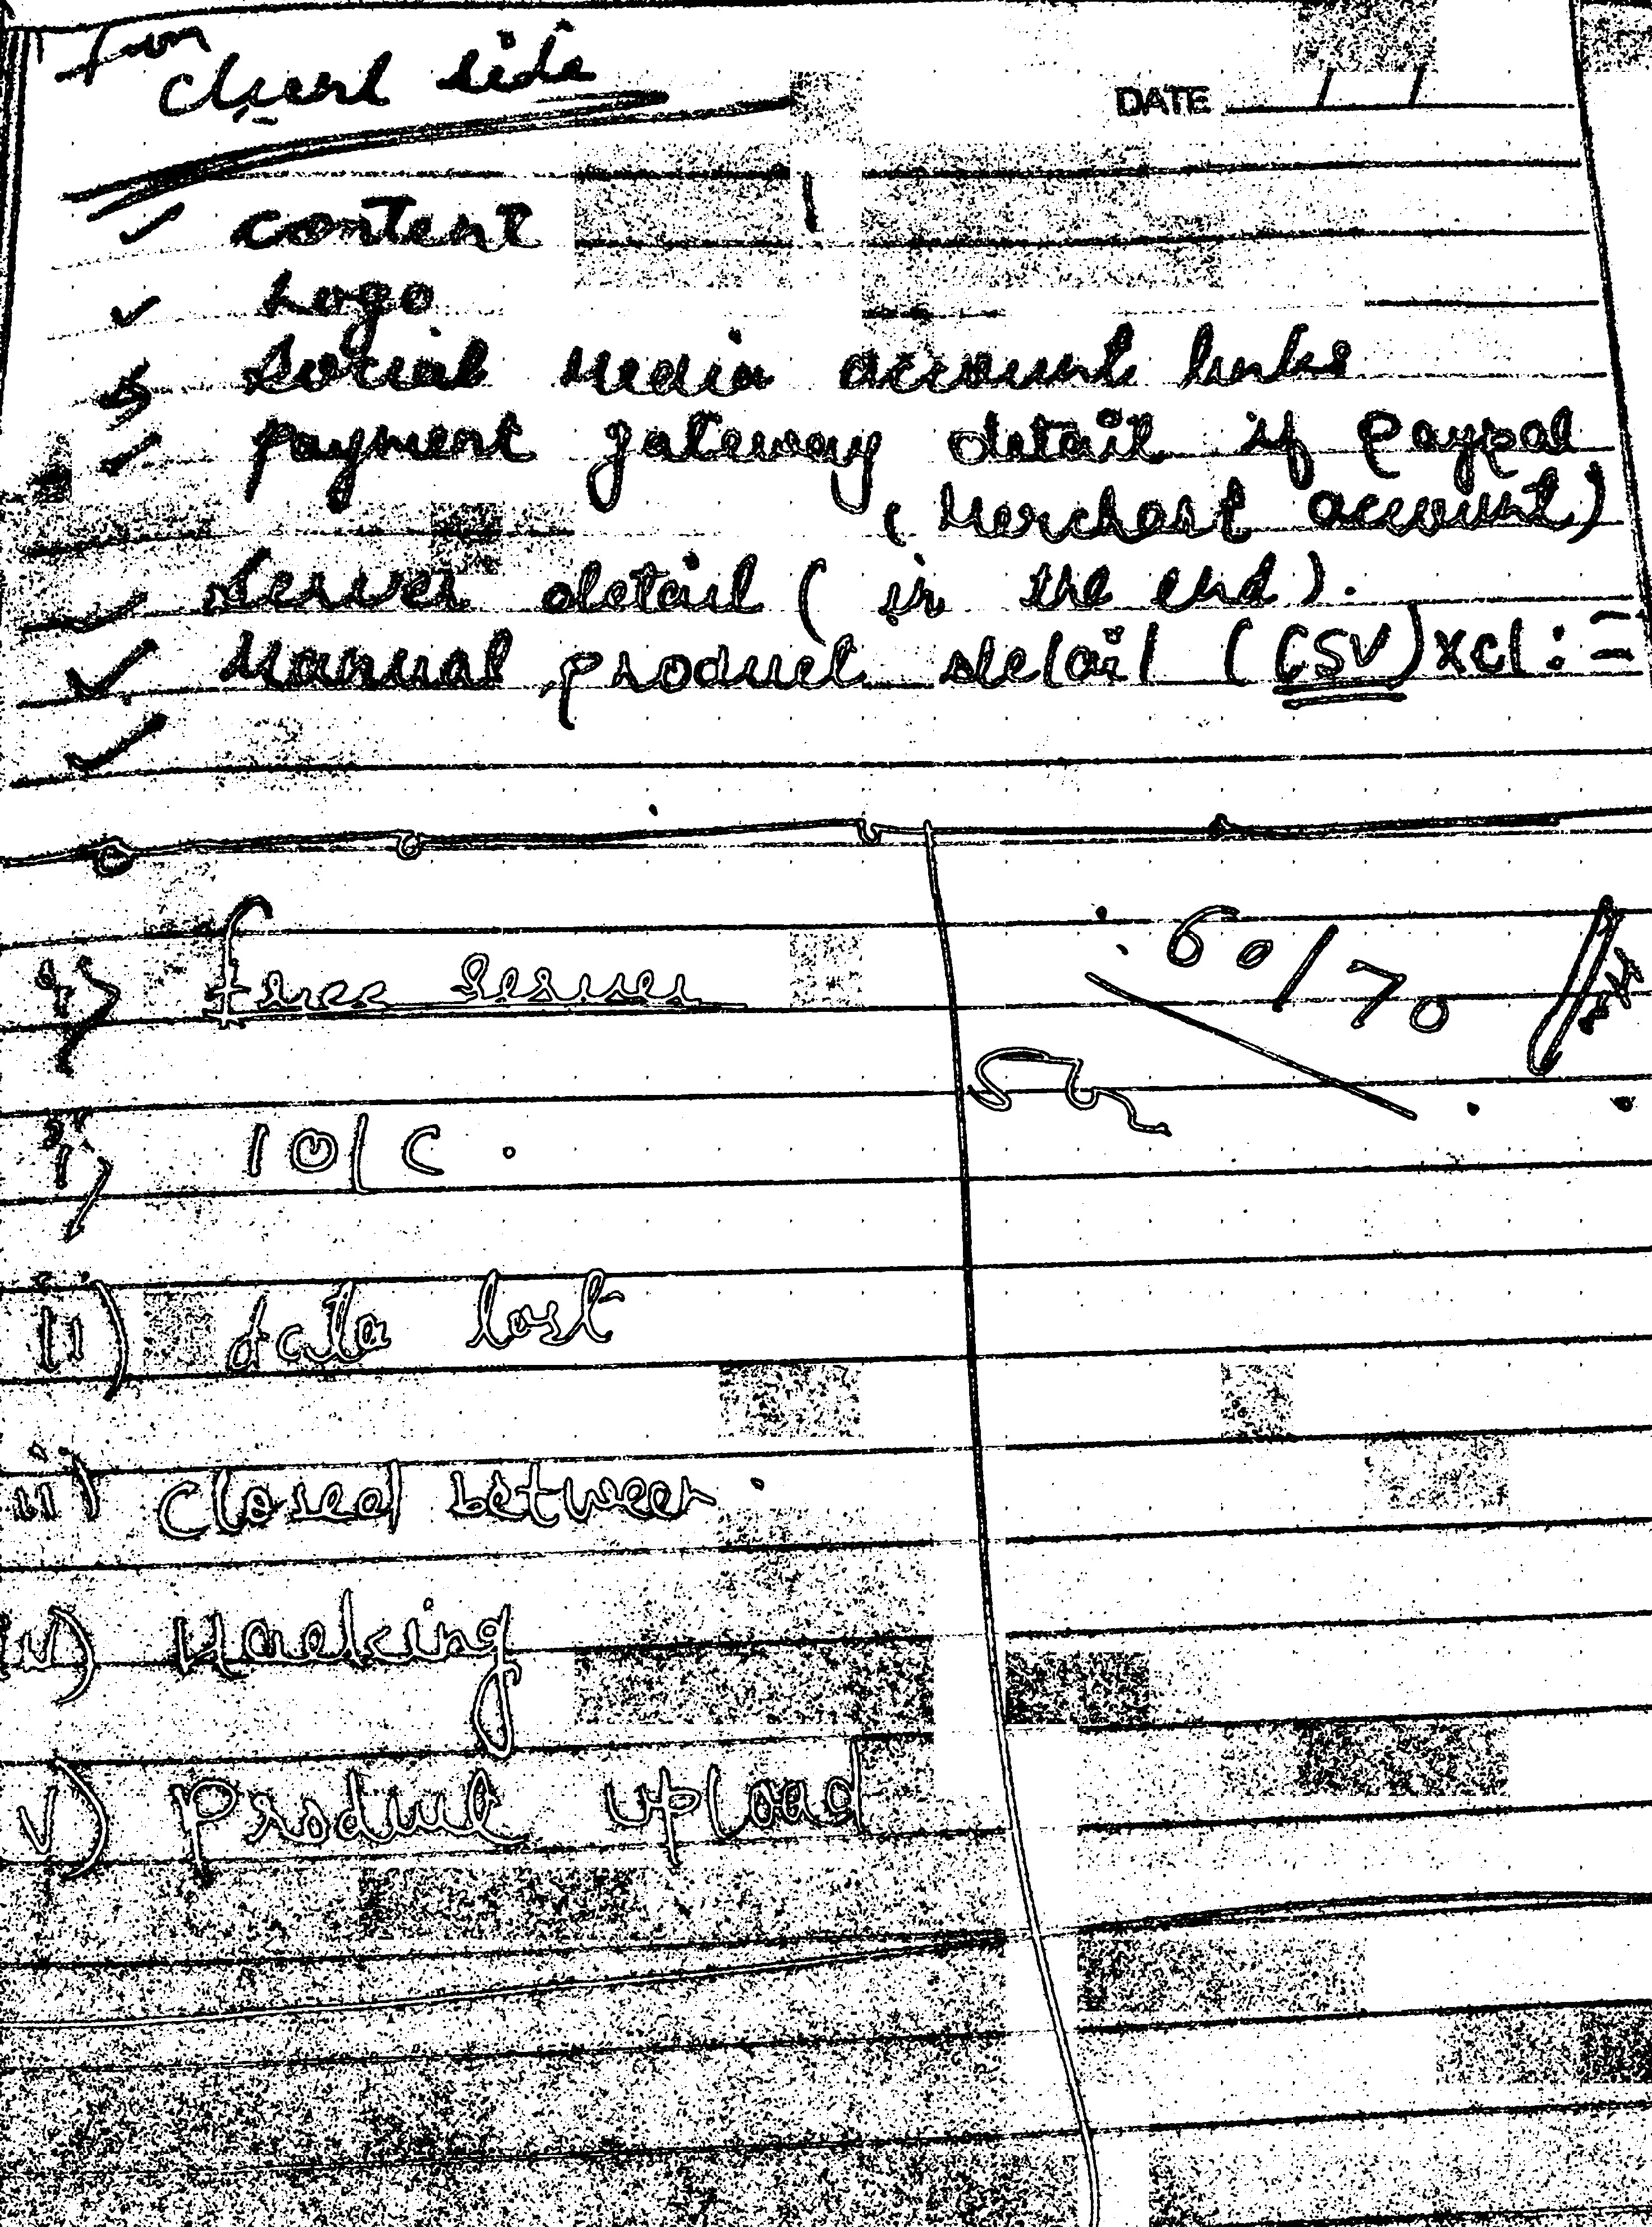 From
Client side
DATE / /
content
Logo
Social Media account links
payment gateway detail if Paypal
(Merchant account)
Server detail (in the end).
Manual product detail (CSV) xcl :=
free Server
60/70
i) 10/C.
ii) data lost
iii) Closed between.
iv) Hacking
v) Product upload